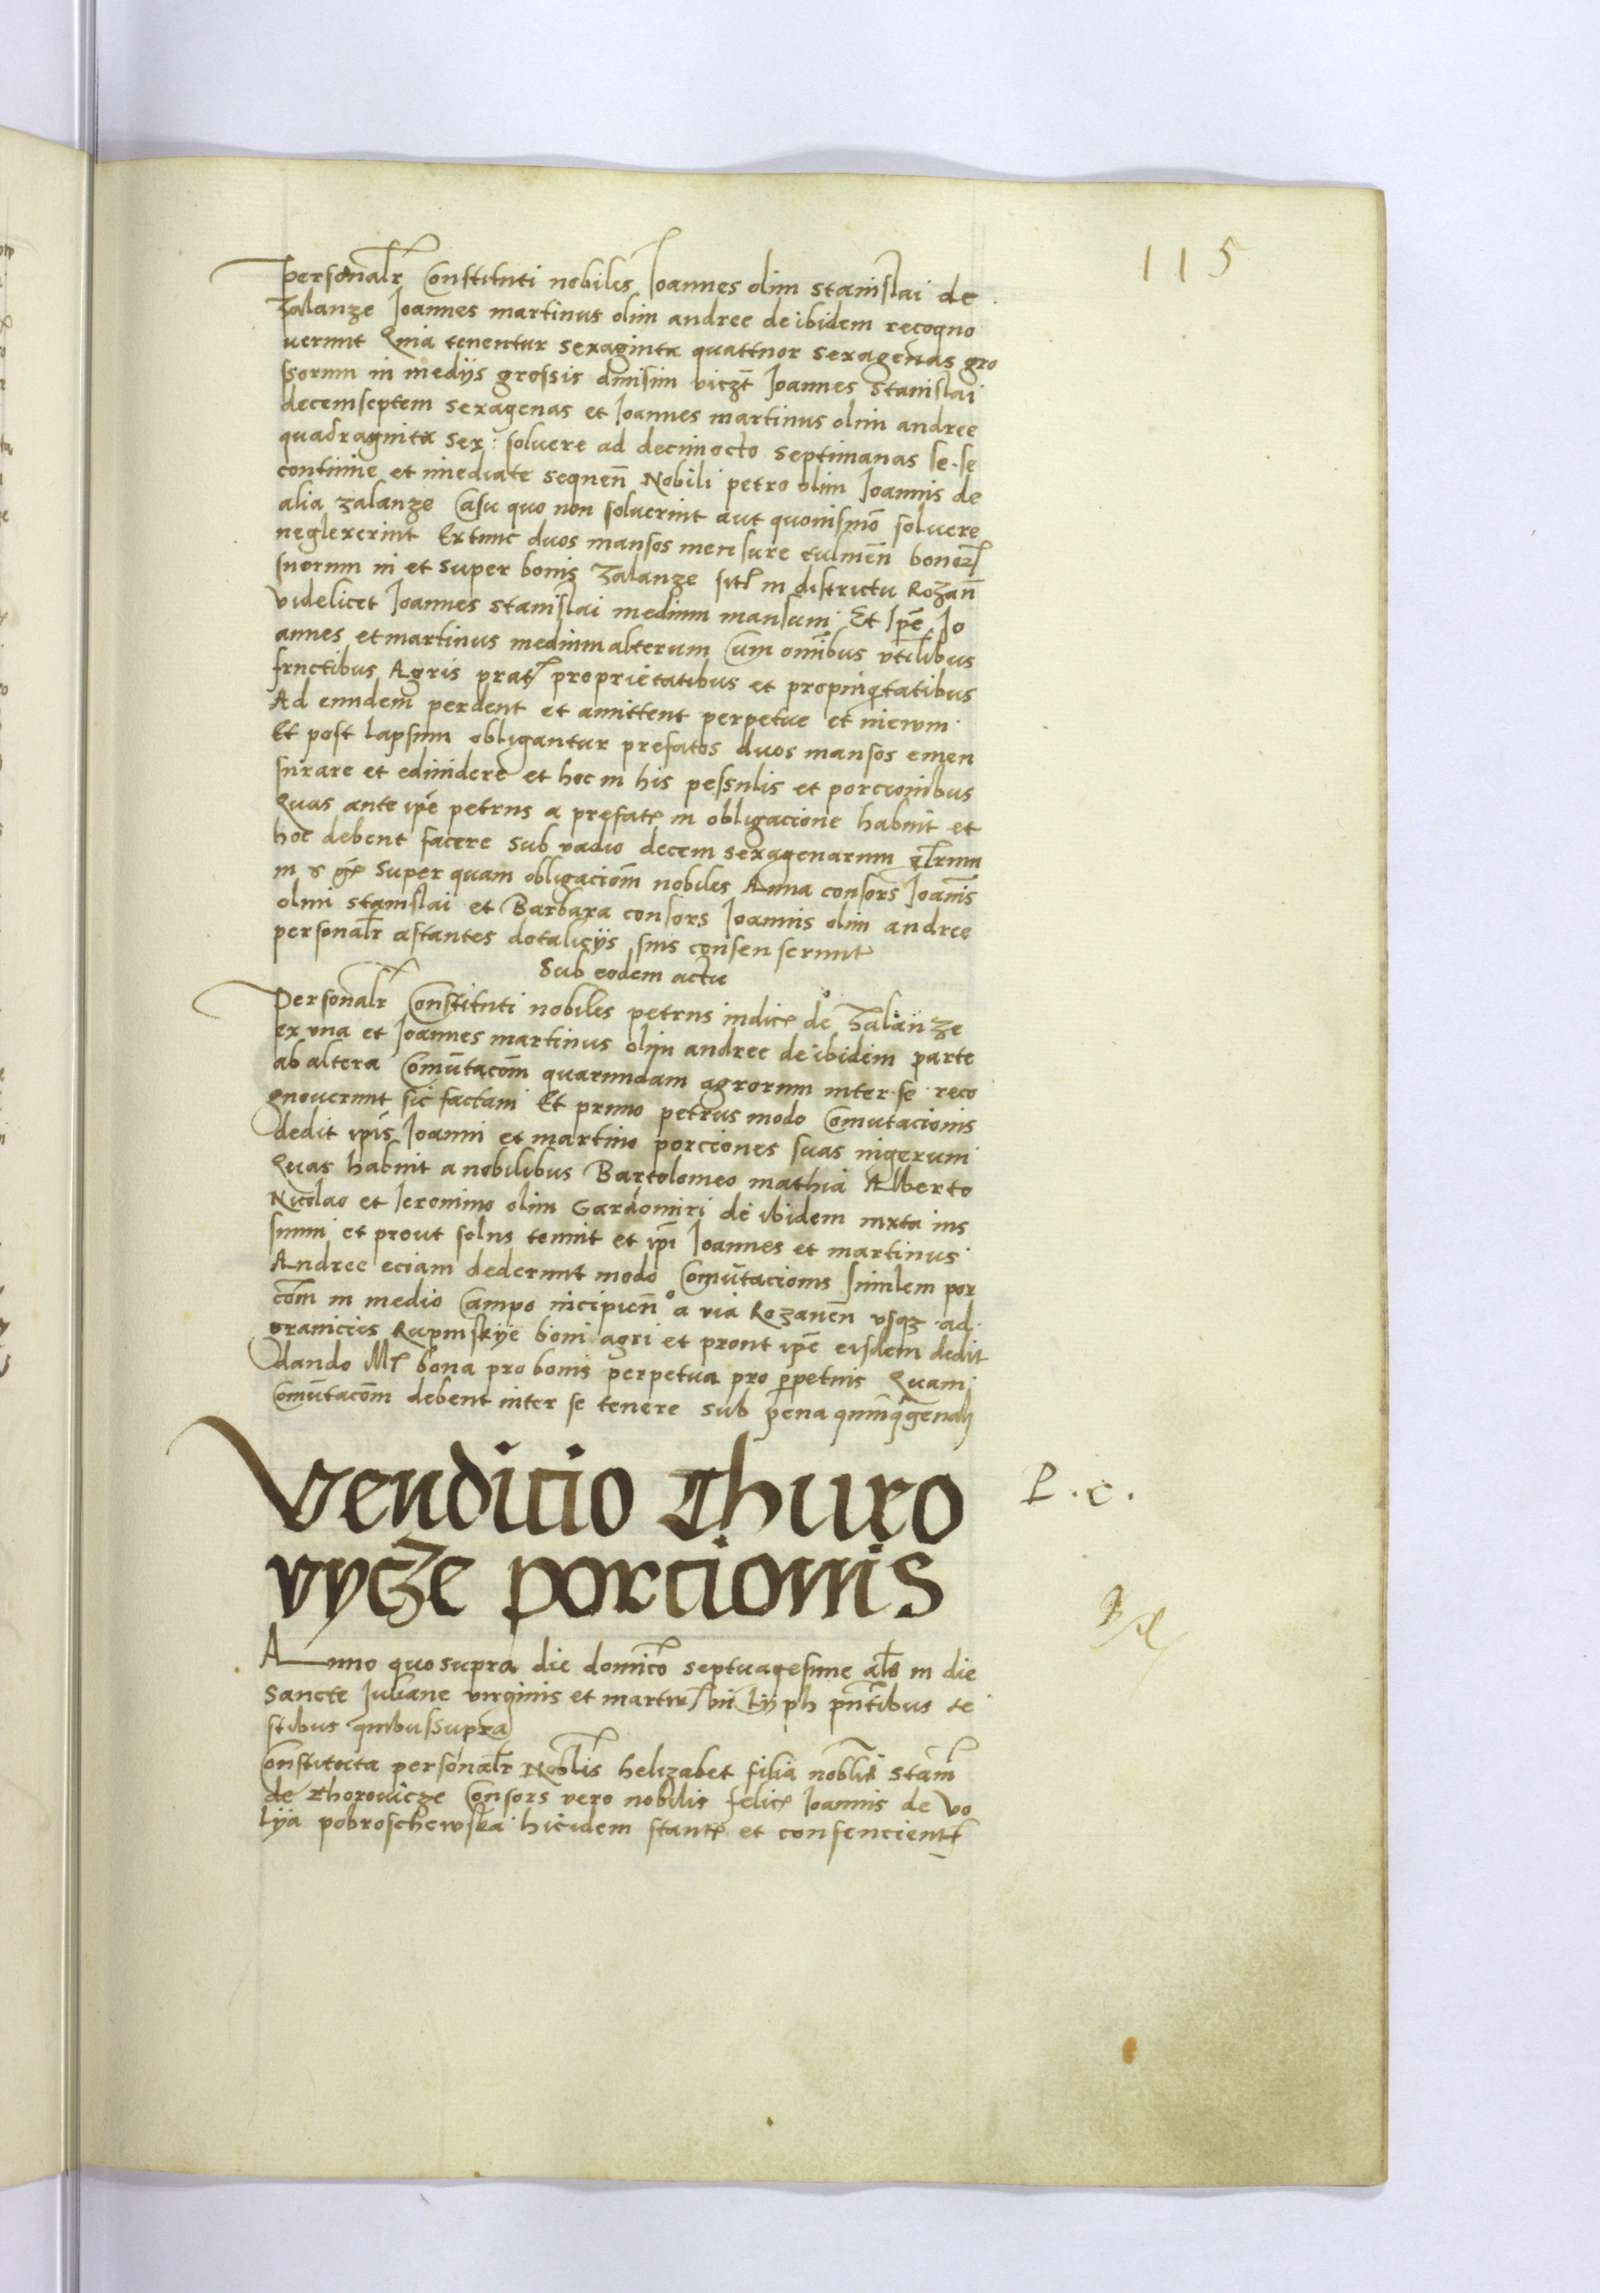 115
personalr Constituti nobiles Joannes olim stanislai de
zalanze Joannes martinus olim andree de ibidem recogno
uerunt Quia tenentur sexaginta quattuor sexagenas gro
ssorum in medijs grossis diuisim viczt Joannes stanislai
decemseptem sexagenas et Joannes martinus olim andree
quadraginta sex: soluere ad decimocto septimanas se.se
continue et imediate sequen Nobili petro olim Joannis de
alia zalanze Casu quo non soluerint aut quouismo soluere
neglexerint Extunc duos mansos mensure culmen bonor
suorum in et super bonis zalanze sit in districtu Rozan
videlicet Joannes stanislai medium mansum Et Ipe Jo
annes et martinus medium alterum Cum omibus vtilibus
fructibus Agris prat proprietatibus et propinqtatibus
Ad eundem perdent et amittent perpetue et in ewm
Et post lapsum obligantur prefatos duos mansos emen
surare et ediuidere et hoc in his pessulis et porcionibus
Quas ante ipe petrus a prefat in obligacione habuit et
hoc debent facere sub vadio decem sexagenarum
Super quam obligaciom nobiles Anna consors Joanis
olim stanislai et Barbara consors Joannis olim andree
personalr astantes dotalicijs suis consenserunt
Sub eodem actu
Personalr Constituti nobiles petrus iudic de zalanze
ex vna et Joannes martinus olim andree de ibidem parte
ab altera Comutacom quarundam agrorum inter se reco
gnouerunt sic factam Et primo petrus modo Comutacionis
dedit ipis Joanni et martino porciones suas nigerum
Quas habuit a nobilibus Bartolomeo mathia Alberto
Nicolao et Jeronimo olim Gardomiri de ibidem iuxta ius
suum et prout solus tenuit et ipi Joannes et martinus
Andree eciam dederunt modo Comutacionis similem por
com in medio Campo incipien a via Rozanen vsqz ad
graniciis Rupinskye boni agri et prout ipe eisdem dedit
dando bona pro bonis perpetua pro ppetuis Quam
Comutacom debent inter se tenere sub pena quinqgenali
Vendicio Thuro
vycze porcionis
P.c.
Anno quo supra die dominco septuagesime als in die
sancte Juliane virginis et martir in Lyph pntibus te
stibus quibus supra
Constituta personalr Noblis helizabet filia noblis Stani
de Thorouicze Consors vero nobilis felic Joannis de vo
lya pobroschewska hicidem stant et consencient